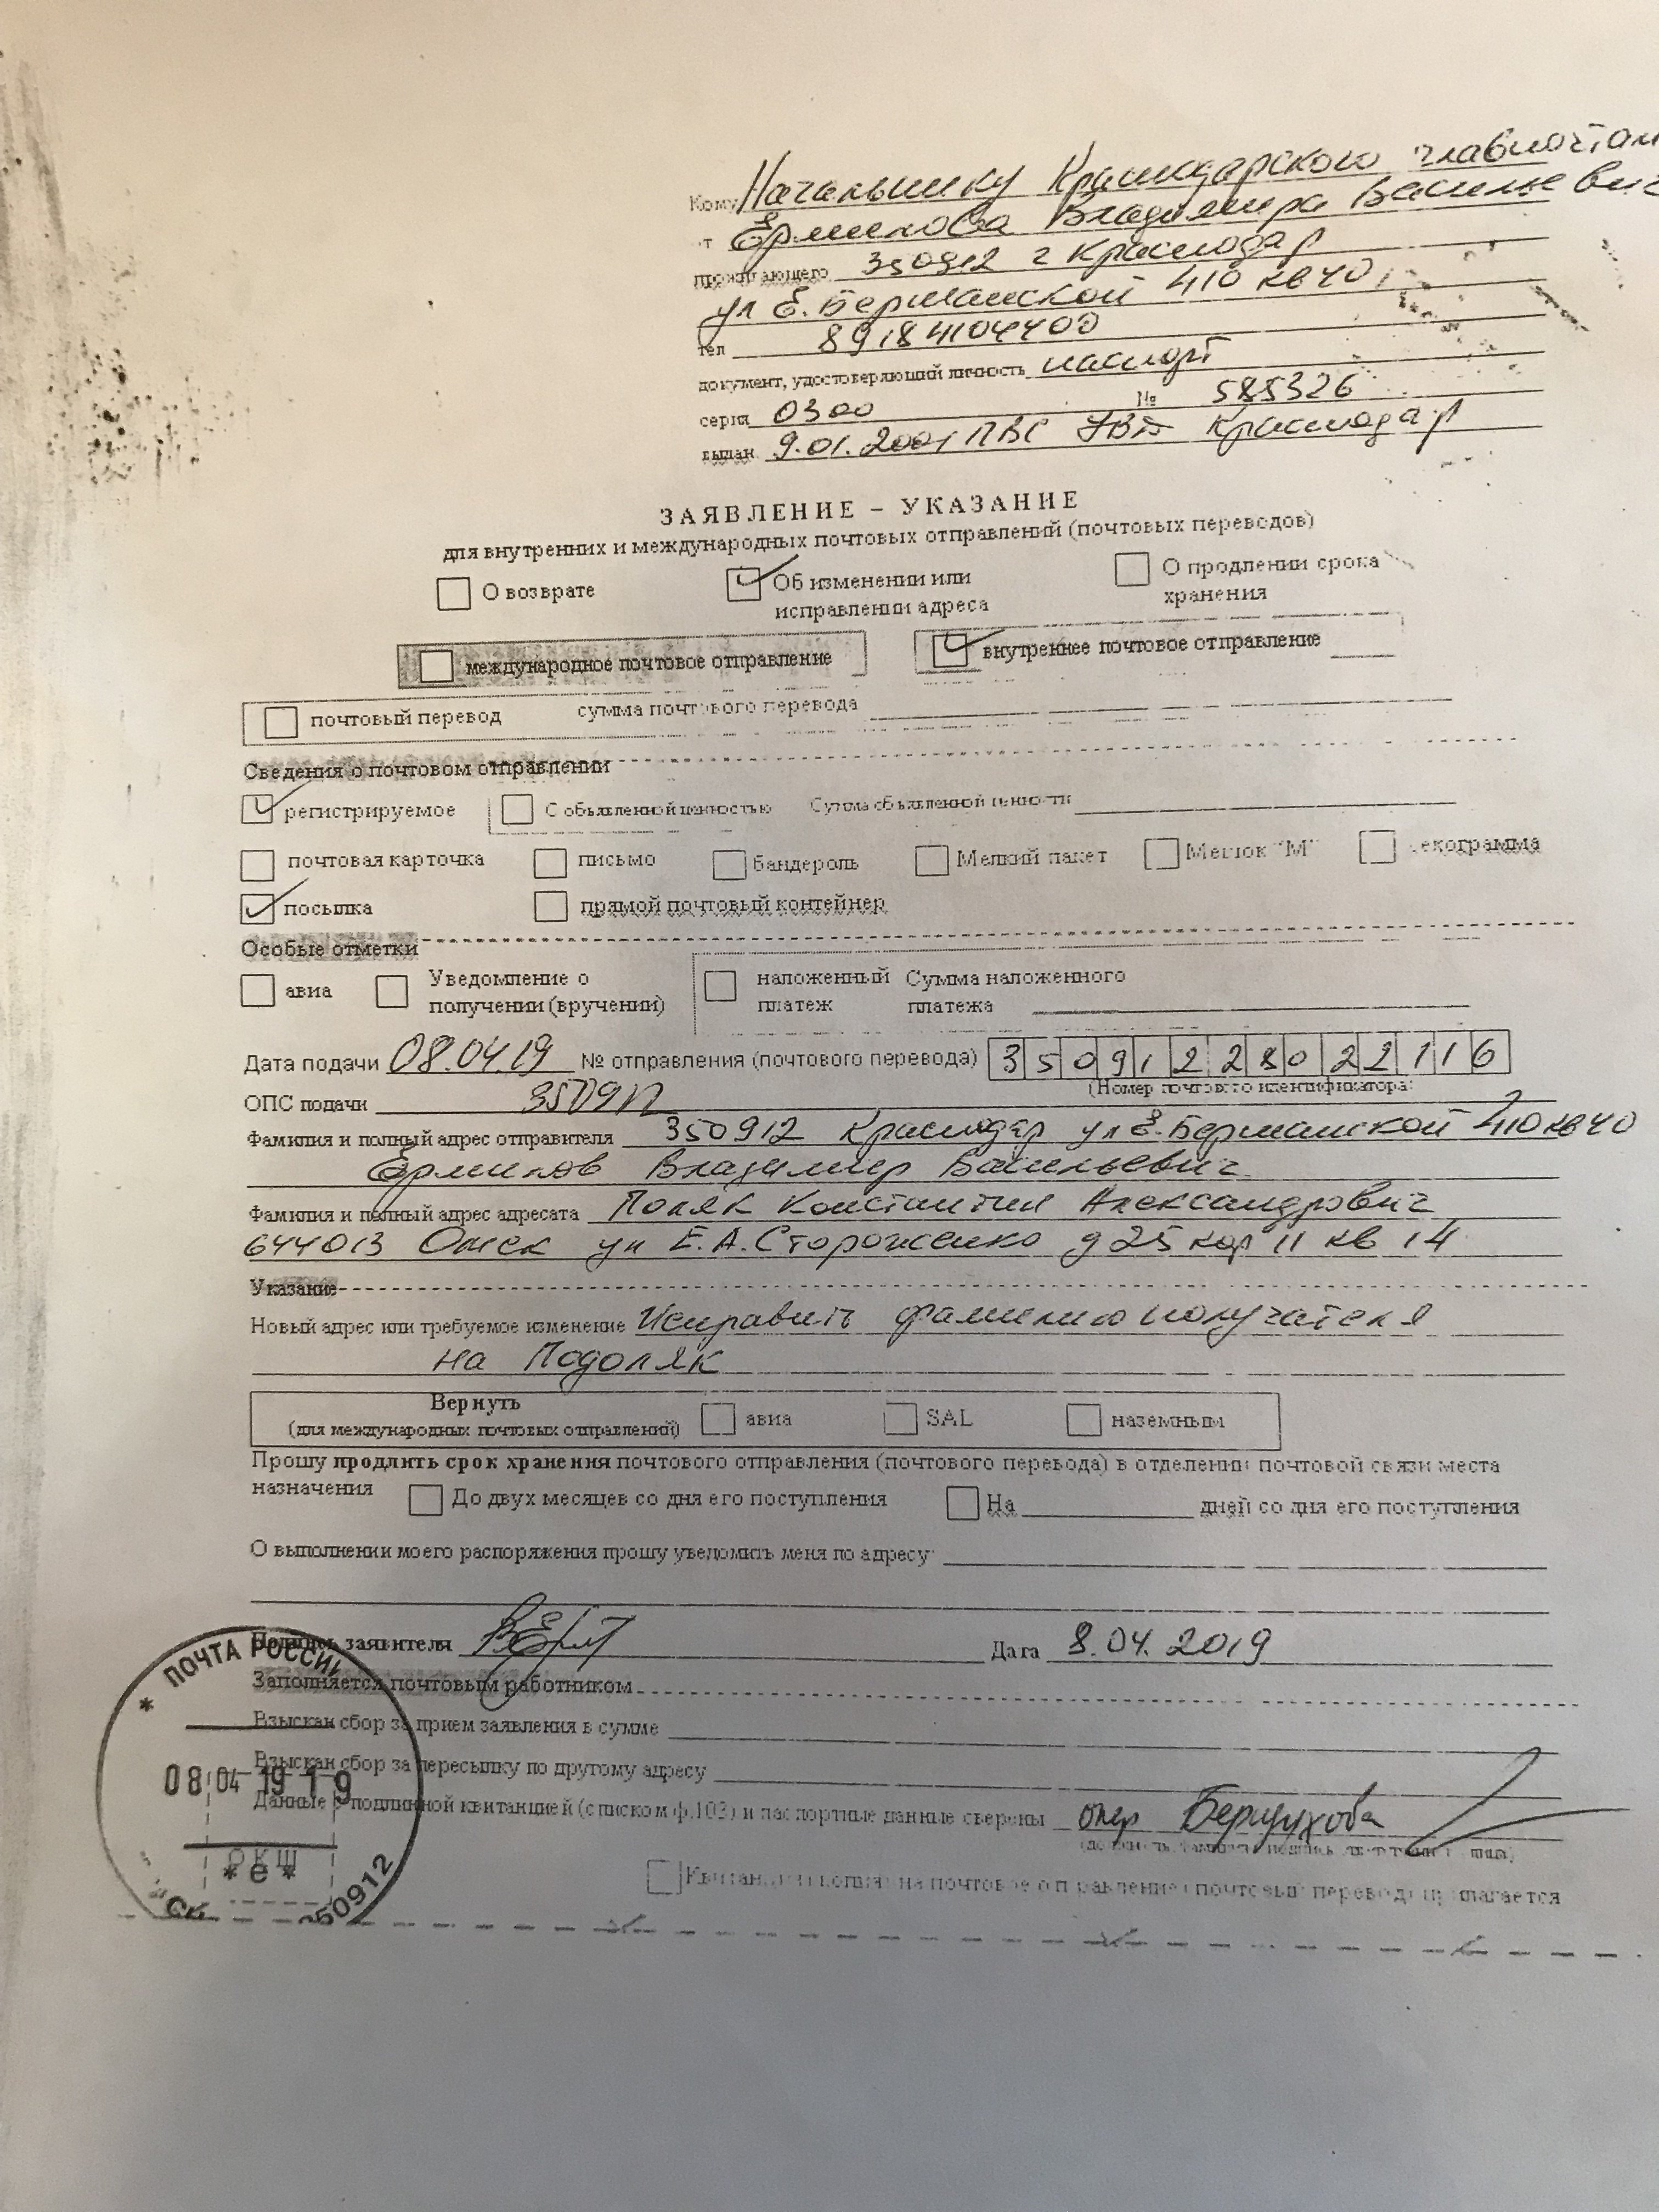 Кому Начальнику Краснодарского главпочтам
от Ермилова Владимира Васильевич
проживающего 350912 г Краснодар
ул Е.Бершанской 410 кв 40
тел 89184104400
документ, удостоверяющий личность паспорт
серия 0300 № 585326
выдан 9.01.2001 ПВС УВД Краснодар
ЗАЯВЛЕНИЕ – УКАЗАНИЕ
для внутренних и международных почтовых отправлений (почтовых переводов)
О возврате Об изменении или исправлении адреса О продлении срока хранения
международное почтовое отправление внутреннее почтовое отправление
почтовый перевод сумма почтового перевода
Сведения о почтовом отправлении
регистрируемое С объявленной ценностью Сумма объявленной ценности
почтовая карточка письмо бандероль Мелкий пакет Мешок "М" секограмма
посылка прямой почтовый контейнер
Особые отметки
авиа Уведомление о получении (вручении) наложенный платеж Сумма наложенного платежа
Дата подачи 08.04.19 № отправления (почтового перевода) 35091228022116
(Номер почтового идентификатора)
ОПС подачи 350912
Фамилия и полный адрес отправителя 350912 Краснодар ул Е.Бершанской 410 кв 40
Ермилов Владимир Васильевич
Фамилия и полный адрес адресата Поляк Константин Александрович
644013 Омск ул Е.А.Стороженко д 25 кор 11 кв 14
Указание
Новый адрес или требуемое изменение Исправить фамилию получателя
на Подоляк
Вернуть
(для международных почтовых отправлений) авиа SAL наземным
Прошу продлить срок хранения почтового отправления (почтового перевода) в отделении почтовой связи места
назначения До двух месяцев со дня его поступления На дней со дня его поступления
О выполнении моего распоряжения прошу уведомить меня по адресу
Подпись заявителя Дата 8.04.2019
Заполняется почтовым работником
Взыскан сбор за прием заявления в сумме
Взыскан сбор за пересылку по другому адресу
Данные с подлинной квитанцией (списком ф.103) и паспортные данные сверены опер
(должность, фамилия, подпись
Квитанция (копия) на почтовое отправление (почтовый перевод) прилагается
* ПОЧТА РОССИИ
08 04 19 19
* е *
350912